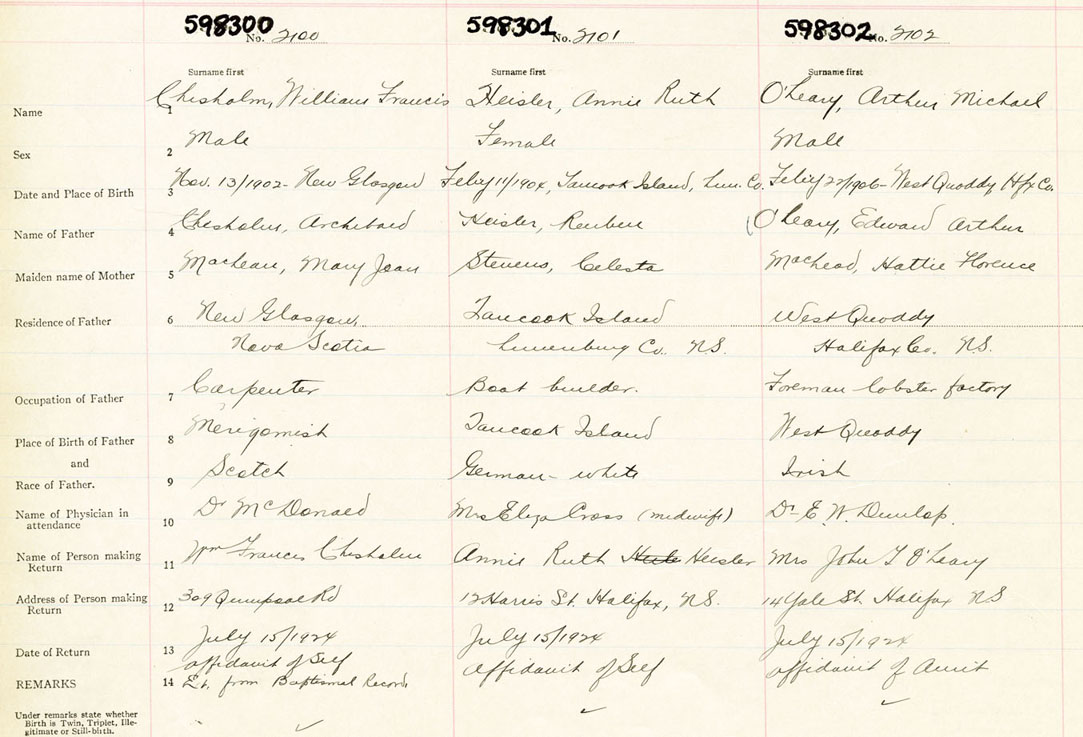 598300 598301 598302
No. 2100 No. 2101 No. 2102
Surname first Surname first Surname first
Name 1 Chisholm, William Francis Heisler, Annie Ruth O'Leary, Arthur Michael
Sex 2 Male Female Male
Date and Place of Birth 3 Nov. 13/1902 - New Glasgow Feby 11/1904, Tancook Island, Lun. Co. Feby 22/1906 - West Quoddy Hfx Co.
Name of Father 4 Chisholm, Archibald Heisler, Reuben O'Leary, Edward Arthur
Maiden name of Mother 5 MacLean, Mary Jean Stevens, Celesta Hattie Florence
Residence of Father 6 New Glasgow, Tancook Island West Quoddy
Nova Scotia Lunenburg Co. N.S. Halifax Co. N.S.
Occupation of Father 7 Carpenter Boat builder. Foreman lobster factory
Place of Birth of Father 8 Merigomish Tancook Island West Quoddy
and
Race of Father. 9 Scotch German - white Irish
Name of Physician in
attendance 10 Dr McDonald Mrs Eliza Cross (midwife) Dr E. W. Dunlop.
Name of Person making
Return 11 Wm Francis Chisholm Annie Ruth Heisler Mrs John T O'Leary
Address of Person making
Return 12 309 Quinpool Rd 12 Harris St. Halifax, N.S. 14 Yale St. Halifax N S
Date of Return 13 July 15/1924 July 15/1924 July 15/1924
affidavit of Self affidavit of Self affidavit of Aunt
REMARKS 14 from Baptismal Record
Under remarks state whether
Birth is Twin, Triplet, Ille-
gitimate or Still-birth.